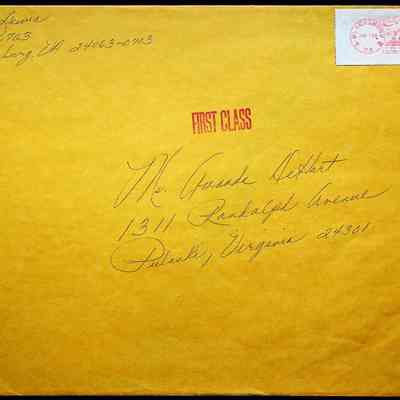 Lewis
703
burg, VA 24063-0703
FIRST CLASS
Mr. DeHart
1311 Randolph Avenue
Pulaski, Virginia 24301